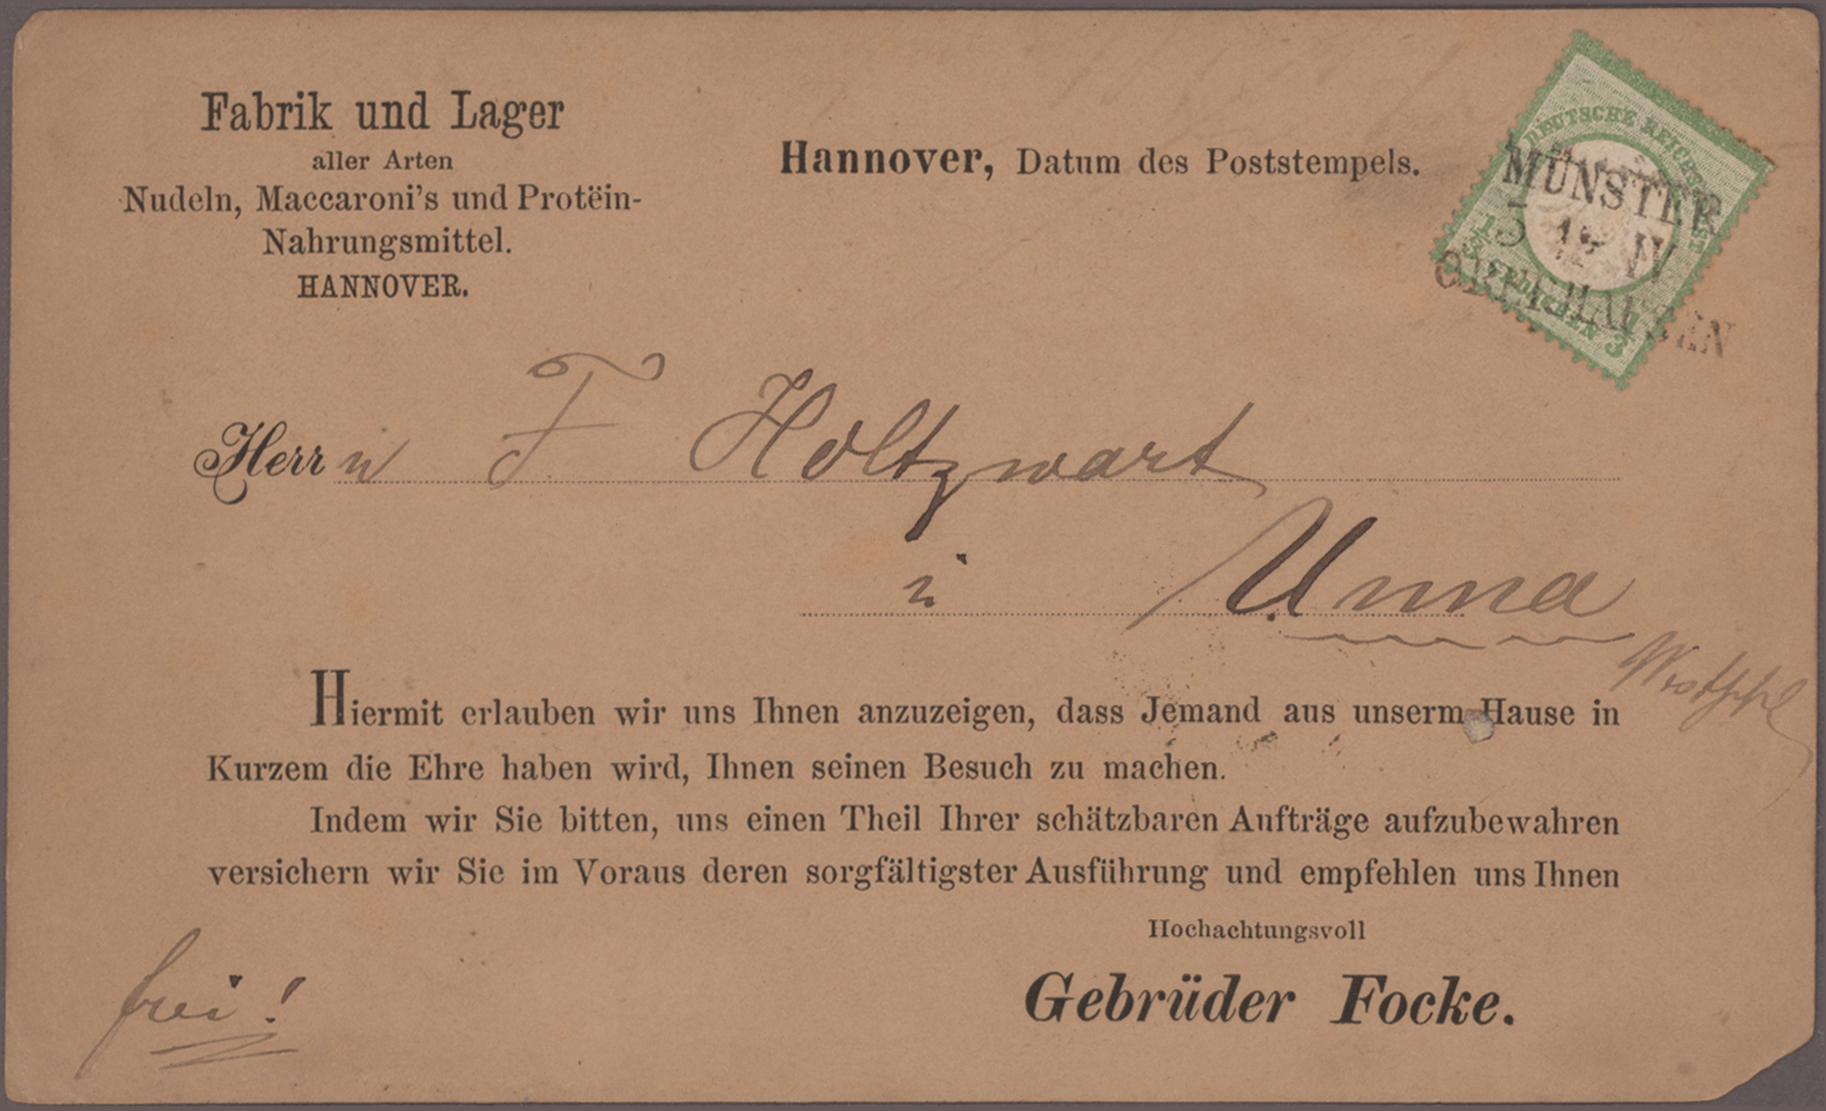 Fabrik und Lager
aller Arten
Nudeln, Maccaroni's und Protëin-
Nahrungsmittel.
HANNOVER.
Hannover, Datum des Poststempels.
DEUTSCHE REICHSPOST
MÜNSTER
5 12 IV
OBERHAUSEN
Herrn F Holtzwart
in Unna
Westphl
Hiermit erlauben wir uns Ihnen anzuzeigen, dass Jemand aus unserm Hause in
Kurzem die Ehre haben wird, Ihnen seinen Besuch zu machen.
Indem wir Sie bitten, uns einen Theil Ihrer schätzbaren Aufträge aufzubewahren
versichern wir Sie im Voraus deren sorgfältigster Ausführung und empfehlen uns Ihnen
Hochachtungsvoll
Gebrüder Focke.
frei!